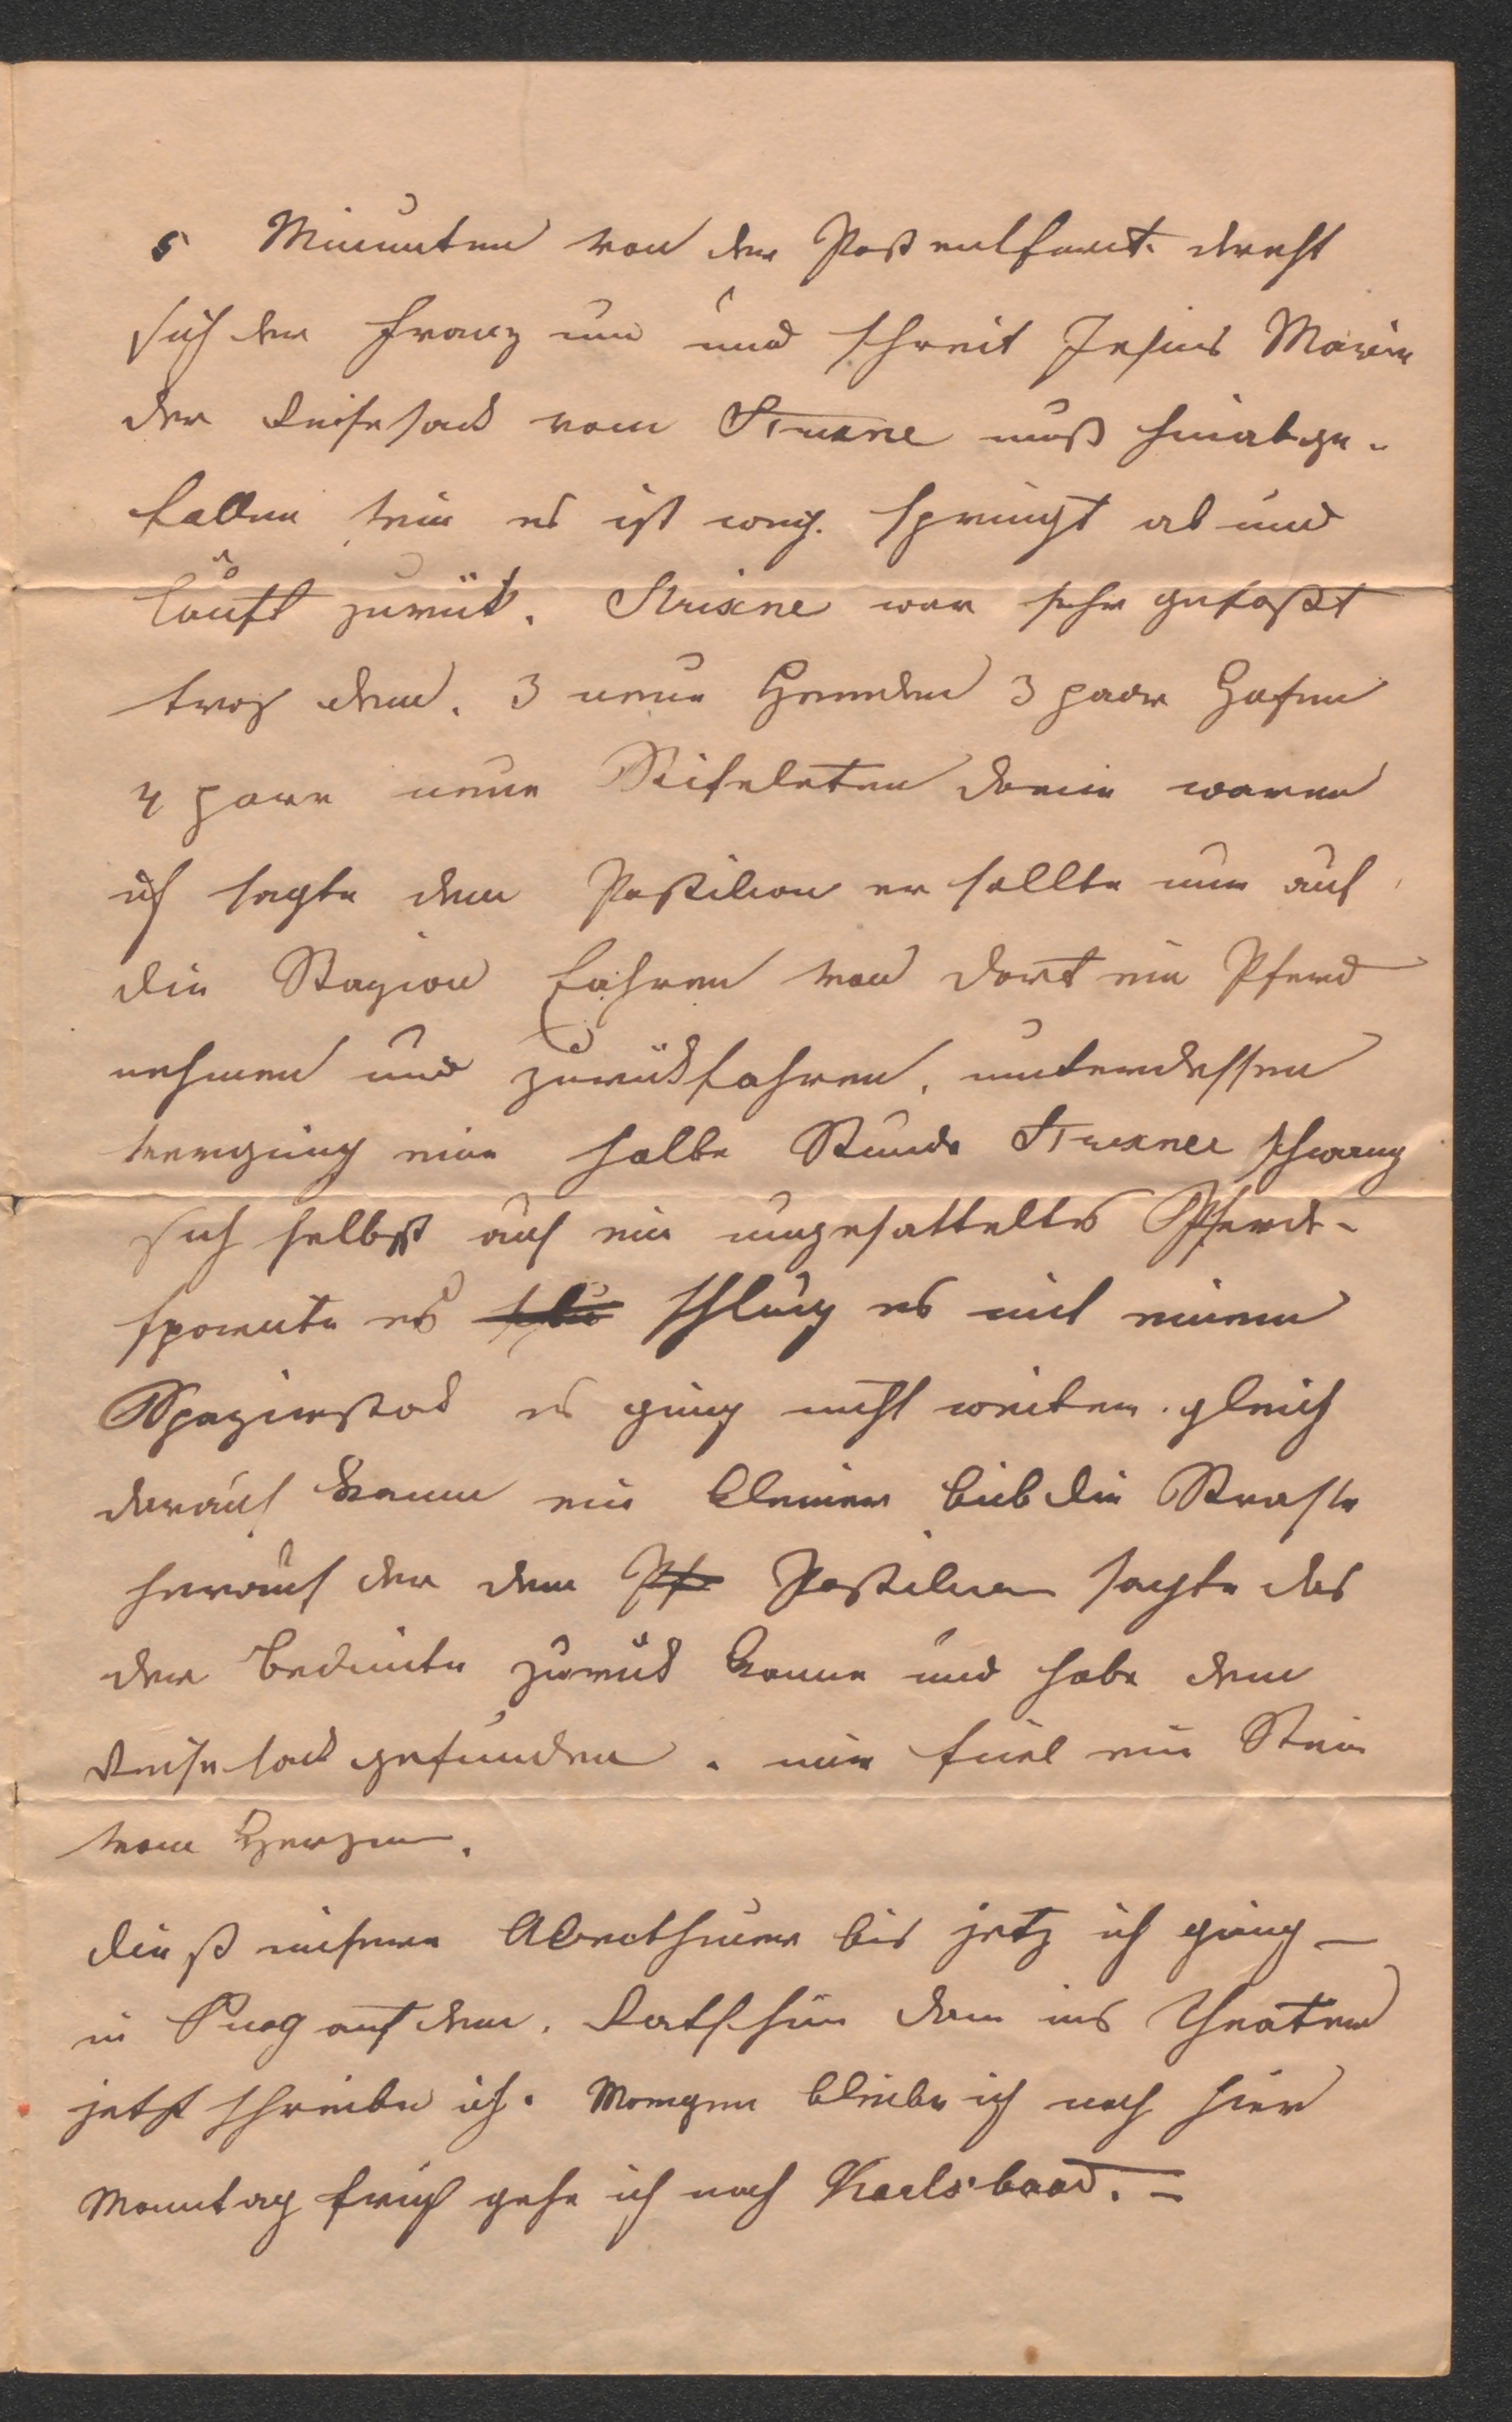 5 Minuten von der Post entfernt. dreht
sich der Franz um und schreit Jesus Maria
der Reisesack vom Strixne muß hinabge-
fallen sein es ist weg. springt ab und
läuft zurük. Strixne war sehr gefaßt
troz dem. 3 neue Hemden 3 paar Hosen
4 paar neue Stifeleten darin waren
ich sagte dem Postilion er sollte nun auf
die Stazion fahren von dort ein Pferd
nehmen und zurükfahren, unterdessen
verging eine halbe Stunde Strixner schwang
sich selbst auf ein ungesatteltes Pferd-
spornte es schlug es mit einem
Spazierstok es ging nicht weiter. gleich
darauf kamm ein kleiner bub die Strasse
herauf der dem Pf Postilion sagte das
der bediente zurük komme und habe den
Reisesack gefunden. mir fiel ein Stein
vom Herzen.
dieß unsere Abentheuer bis jetz ich ging -
in Prag auf den Ratschin dan ins Theater
jetzt schreibe ich. Morgen bleibe ich noch hier
Monntag früh gehe ich nach Karlsbaad. -